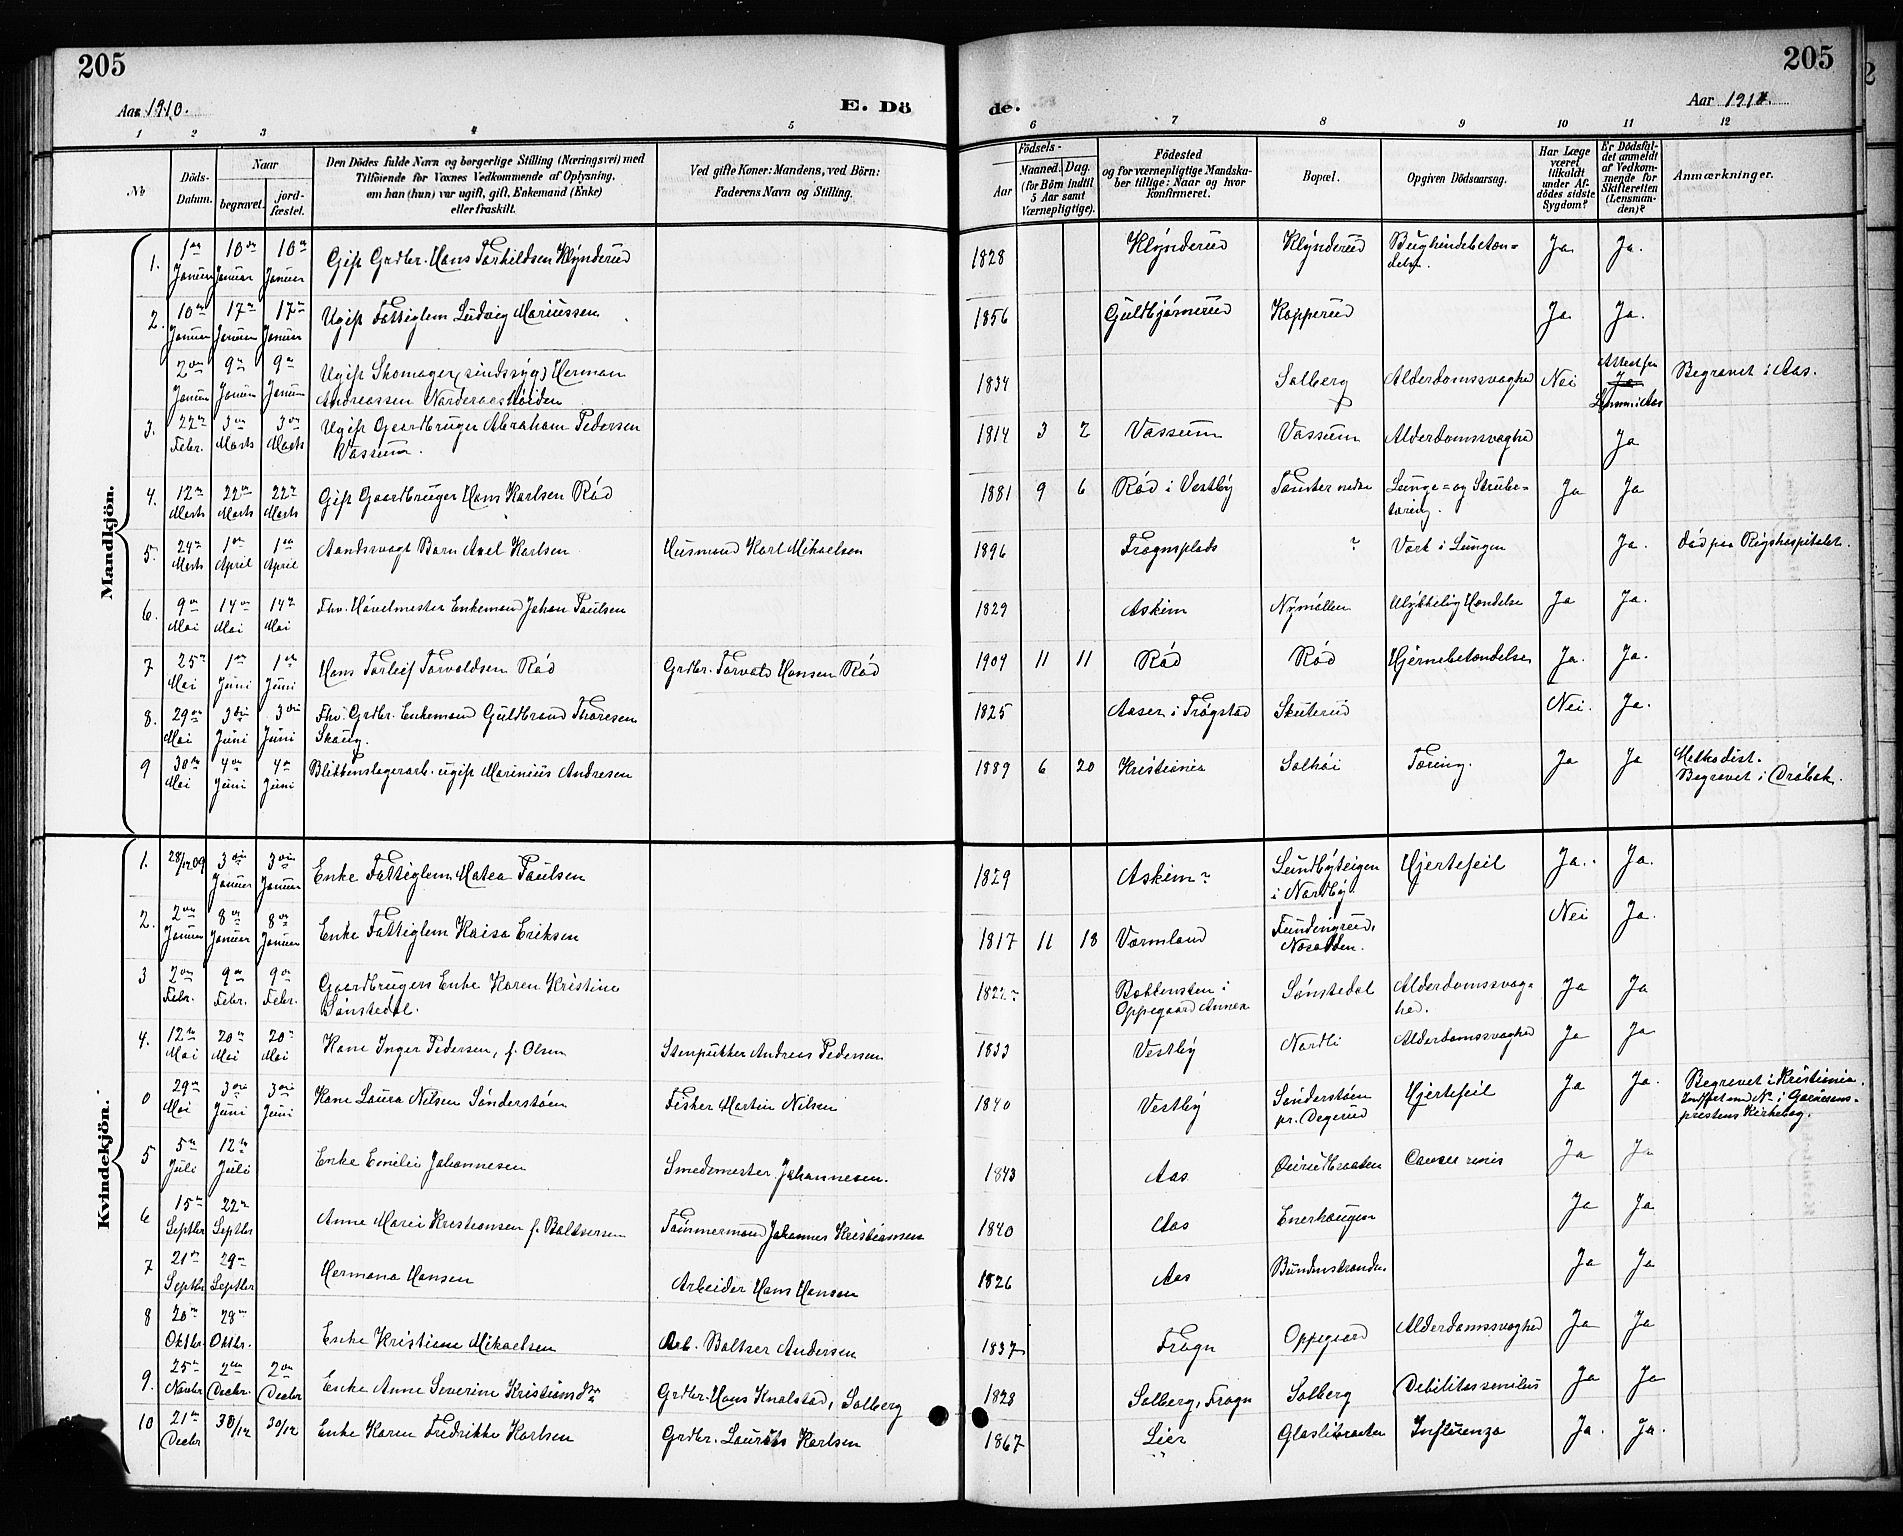 205
205
Aar 1910.
E. Dö
de.
Aar 1910.
1 2 3 4 5 6 7 8 9 10 11 12
No
Döds-Datum.
Naar
begravet.
jordfæstet.
Den Dödes fulde Navn og borgerlige Stilling (Næringsvei) med
Tilföiende for Voxnes Vedkommende af Oplysning,
om han (hun) var ugift, gift, Enkemand (Enke)
eller fraskilt.
Ved gifte Koner: Mandens, ved Börn:
Faderens Navn og Stilling.
Födsels-
Aar
Maaned. Dag.
(for Börn indtil
5 Aar samt
Værnepligtige).
Födested
og for værnepligtige Mandskaber tillige: Naar og hvor
konfirmeret.
Bopæl.
Opgiven Dödsaarsag.
Har Læge
været
tilkaldt
under Afdödes sidste
Sygdom?
Er Dödsfaldet anmeldt
af Vedkommende for
Skifteretten
(Lensmanden)?
Anmærkninger.
Mandkjön.
1. 1ste Januar 10de Januar 10de Januar Gift Grdbr. Hans Torkildsen Klynderud 1828 Klynderud Klynderud Bughindebetændelse. Ja Ja.
2. 10de Januar 17de Januar 17de Januar Ugift Fattiglem Ludvig Mariussen 1856 Guldbjørnerud Kopperud Ja Ja.
2den Januar 9de Januar 9de Januar Ugift Skomager (sindssyg) Herman
Andreassen Norderaasheiden 1834 Solberg Alderdomssvaghed Nei Attest fra Ja Lensm. i Aas Begravet i Aas.
3. 22de Febr. 3die Marts 3die Marts Ugift Gaardbruger Abraham Pedersen
Vassum. 1814 3 2 Vassum Vassum Alderdomssvaghed Ja
4. 12te Marts 22de Marts 22de Marts Gift Gaardbruger Hans Karlsen Rød 1881 9 6 Rød i Vestby Tomter nedre Lunge- og Strubetæring. Ja Ja
5. 24de Marts 1ste April 1ste April Aandssvagt Barn Axel Karlsen Husmand Karl Mikaelsen 1896 Frognsplads ? Vørk i Lungen Ja. død paa Rigshospitalet.
6. 9de Mai 14de Mai 14de Mai Fhv. Høvelmester Enkemand Johan Paulsen 1829 Askim Nymøllen Ulykkelig Hændelse Ja Ja.
7 25de Mai 1ste Juni 1ste Juni Hans Torleif Torvaldsen Rød Grdbr. Torvald Hansen Rød 1909 11 11 Rød Rød Hjernebetændelse Ja. Ja.
8. 29de Mai 3die Juni 3die Juni Fhv. Grdbr. Enkemand Guldbrand Thoresen
Skaug. 1825 Aaser i Trøgstad Skuterud Nei. Ja.
9 30te Mai 4de Juni 4de Juni Blikkenslagerarb. ugift Marinius Andresen 1889 6 20 Kristiania Solhøi Tæring. Ja Ja Methodist.
Begravet i Drøbak.
Kvindekjön.
1. 28/12 09 3die Januar 3die Januar Enke Fattiglem Matea Paulsen 1829 Askim? Lundbyteigen
i Nordby. Hjertefeil Ja. Ja.
2. 2den Januar 8de Januar 8de Januar Enke Fattiglem Kaisa Eriksen 1817 11 18 Vermland Fundingrud,
Nesodden. Nei Ja.
3 2den Febr. 9de Febr. 9de Febr. Gaardbrugers Enke Karen Kristine
Sønstedal. 1822? Bakkensten i
Oppegaard Annex Sønstedal Alderdomssvaghed. Ja Ja
4. 12te Mai 20de Mai 20de Mai Kone Inger Pedersen, f. Olsen Stenpukker Andreas Pedersen 1833 Vestby Nordli Alderdomssvaghed Ja Ja
0 29de Mai 3die Juni 3die Juni Kone Laura Nilsen Sønderstøen Fisker Martin Nilsen 1840 Vestby Sønderstøen
pr. Degerud Hjertefeil Ja Ja. Begravet i Kristiania.
Indført med No i Garnisonsprestens Kirkebog.
5 5te Juli 12te Juli Enke Emilie Johannesen Smedemester Johannesen. 1843 Aas Cancer renis Ja Ja
6 15de Septbr 22de Septbr Anne Marie Kristiansen f. Baltsersen Tømmermand Johannes Kristiansen 1840 Aas Enerhaugen Ja Ja
7 21de Septbr 29de Septbr Hermana Hansen Arbeider Hans Hansen 1826 Aas Bundenstranden Ja Ja
8 20de Oktbr. 28de Oktbr. Enke Kristiane Mikaelsen Arb. Baltser Andersen 1837 Frogn Oppegaard Alderdomssvaghed Ja Ja
9. 25de Novbr 2den Decbr. 2den Decbr Enke Anne Severine Kristiansdtr Grdbr. Hans Knalstad, Solberg 1828 Solberg, Frogn Solberg Debilitas senilis Ja Ja
10 21de Decbr 30/12 30/12 Enke Karen Fredrikke Karlsen Grdbr. Laurits Karlsen 1867 Lier Glaslibraaten Influenza Ja. Ja.